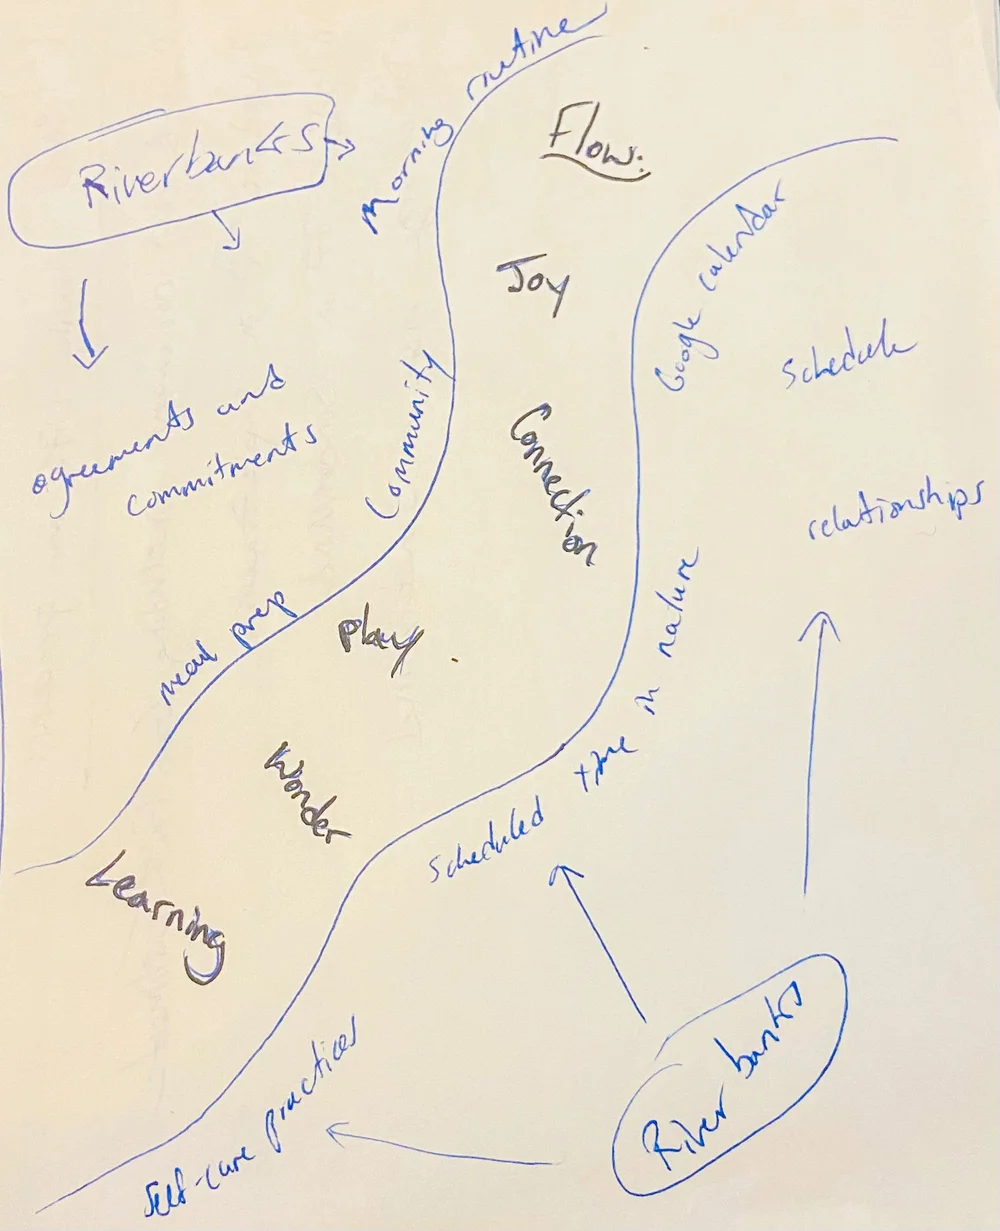 Morning routine
Flow:
Riverbanks
Joy
Google calendar
Schedule
agreements and
commitments
Community
Connection
relationships
meal prep
Play
Scheduled time in nature
Wonder
Learning
Self-care practices
Riverbanks